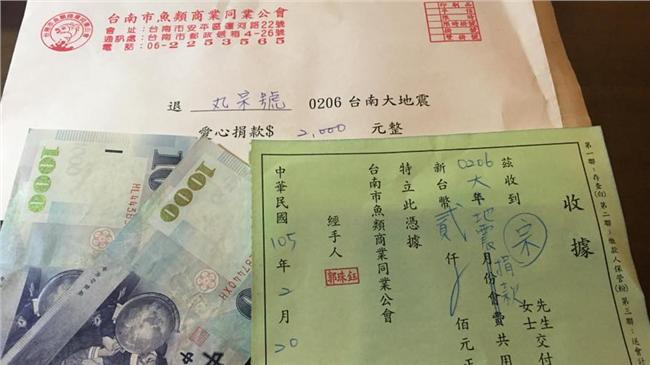 台南市魚類商業同業公會
會址：台南市安平區運河路22號
通訊處：台南市郵政信箱4-26號
電話：06-2253565
退 丸呆號 0206台南大地震
愛心捐款$ 2,000 元整
1000
1000
收據
茲收到 宗 先生 女士 交付
0206大地震捐款 年 月份會費共用
新台幣 貳 仟 佰 元正
特立此憑據
台南市魚類商業同業公會
經手人 郭珠鈺
中華民國 105 年 2 月 20
第一聯：存查(白) 第二聯：繳款人保管(粉) 第三聯：送會計